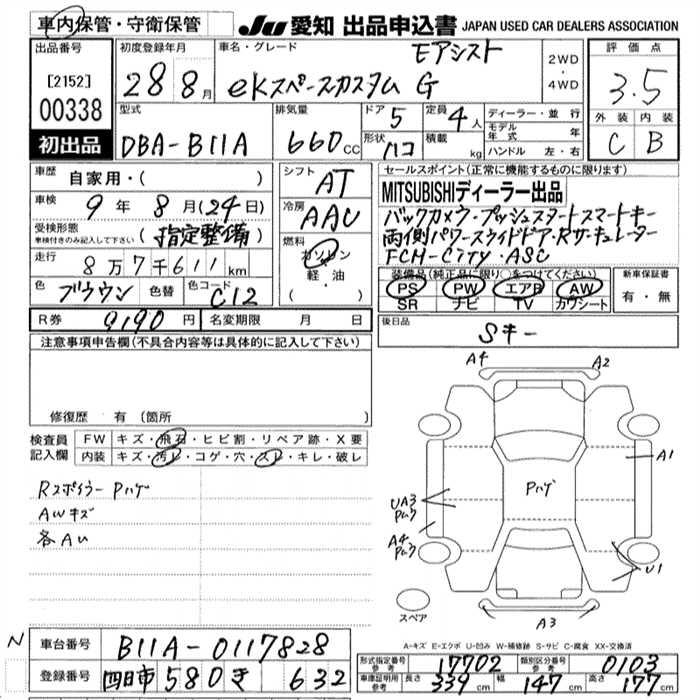 車内保管・守衛保管
JU 愛知 出品申込書 JAPAN USED CAR DEALERS ASSOCIATION
出品番号
[2152]
00338
初出品
初度登録年月
28 8月
車名・グレード
eKスペースカスタム G
モアシスト
2WD
・
4WD
評価点
3.5
外装 内装
C B
型式
DBA-B11A
排気量
660cc
ドア 5
形状 ハコ
定員 4人
積載 kg
ディーラー・並行
モデル年式 年
ハンドル 左・右
車歴 自家用・( )
車検 9年 8月(24日)
受検形態
車検付きのみ記入して下さい (指定整備)
走行 8万7千611km
色 ブラウン 色替 色コード C12
R券 9190円 名変期限 月 日
シフト AT
冷房 AAC
燃料 ガソリン
軽・油
( )
セールスポイント(正常に機能するものに限ります)
MITSUBISHIディーラー出品
バックカメラ・プッシュスタートスマートキー
両側パワースライドドア・Rサーキュレーター
FCM-CITY・ASC
装備品(純正品に限り)をつけてください
PS PW エアB AW
SR ナビ TV カワシート
新車保証書
有・無
後日品
Sキー
注意事項申告欄(不具合内容等は具体的に記入して下さい)
修復歴 有(箇所
検査員記入欄
FW キズ・飛石・ヒビ割・リペア跡・X要
内装 キズ・汚レ・コゲ・穴・スレ・キレ・破レ
Rスポイラー Pハゲ
AWキズ
各AU
A4 A2
A1
Pハゲ
UA3
Pムラ
A4
Pムラ
U1
A3
スペア
A-キズ E-エクボ U-凹み W-補修跡 S-サビ C-腐食 XX-交換済
N
車台番号 B11A-0117828
登録番号 四日市 580 き 632
形式指定番号 参考 17702 類別区分番号 参考 0103
車庫証明用 参考 長さ 339cm 幅 147cm 高さ 177cm